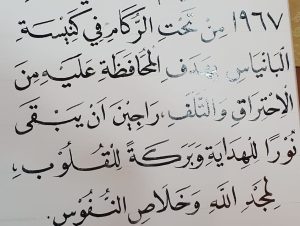 ١٩٦٧ مِنْ تَحْتِ الرُّكَامِ فِي كَنِيْسَةِ
الْبَانْيَاسِ بِهَدَفِ الْمُحَافَظَةِ عَلَيْهِ مِنَ
الْاِحْتِرَاقِ وَالتَّلَفِ، رَاجِيْنَ اَنْ يَبْقَى
نُوْرًا لِلْهِدَايَةِ وَبَرَكَةً لِلْقُلُوْبِ،
لِمَجْدِ اللهِ وَخَلَاصِ النُّفُوْسِ.